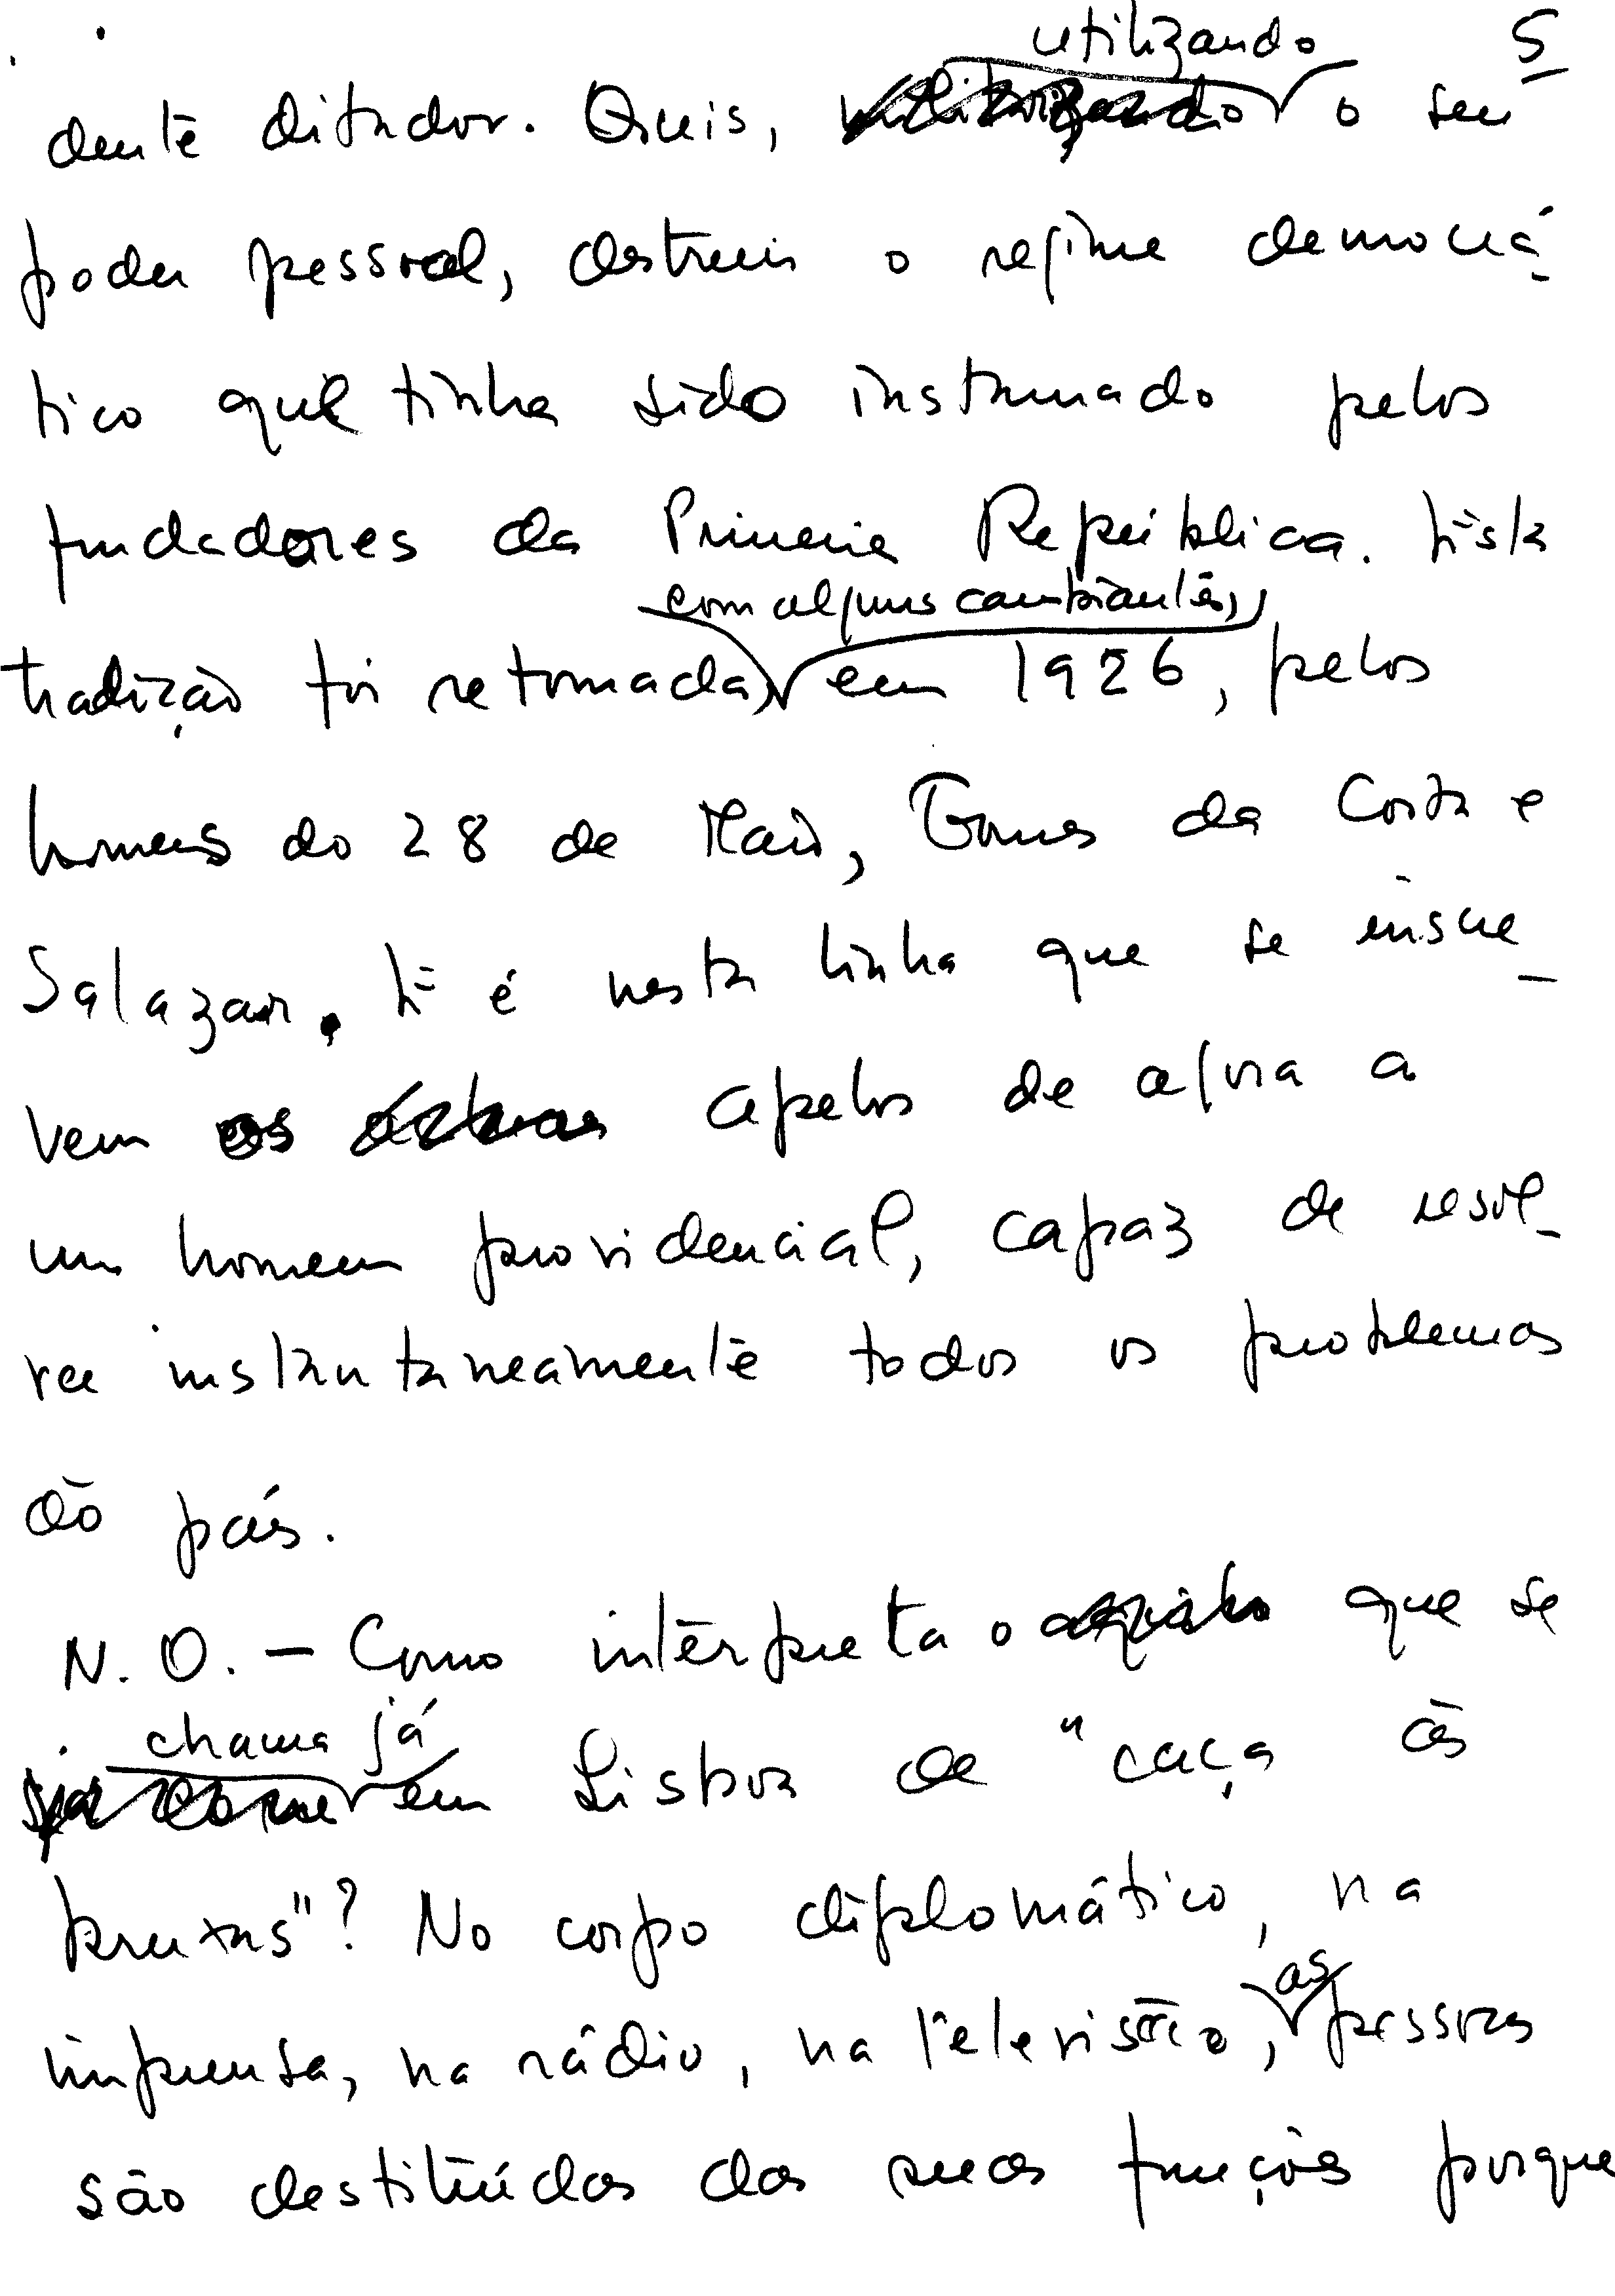 utilizando 5
dente ditador. Quis, o seu
poder pessoal, destruir o regime democrá-
tico que tinha sido instaurado pelos
fundadores da Primeira República. Esta
com alguns cambiantes,
tradição foi retomada, em 1926, pelos
homens do 28 de Maio, Gomes da Costa e
Salazar. E é nesta linha que se inscre-
vem os apelos de agora a
um homem providencial, capaz de resol-
ver instantaneamente todos os problemas
do país.
N. O. — Como interpreta o que se
chama já
em Lisboa de "caça às
bruxas"? No corpo diplomático, na
as
imprensa, na rádio, na televisão, pessoas
são destituídas das suas funções porque